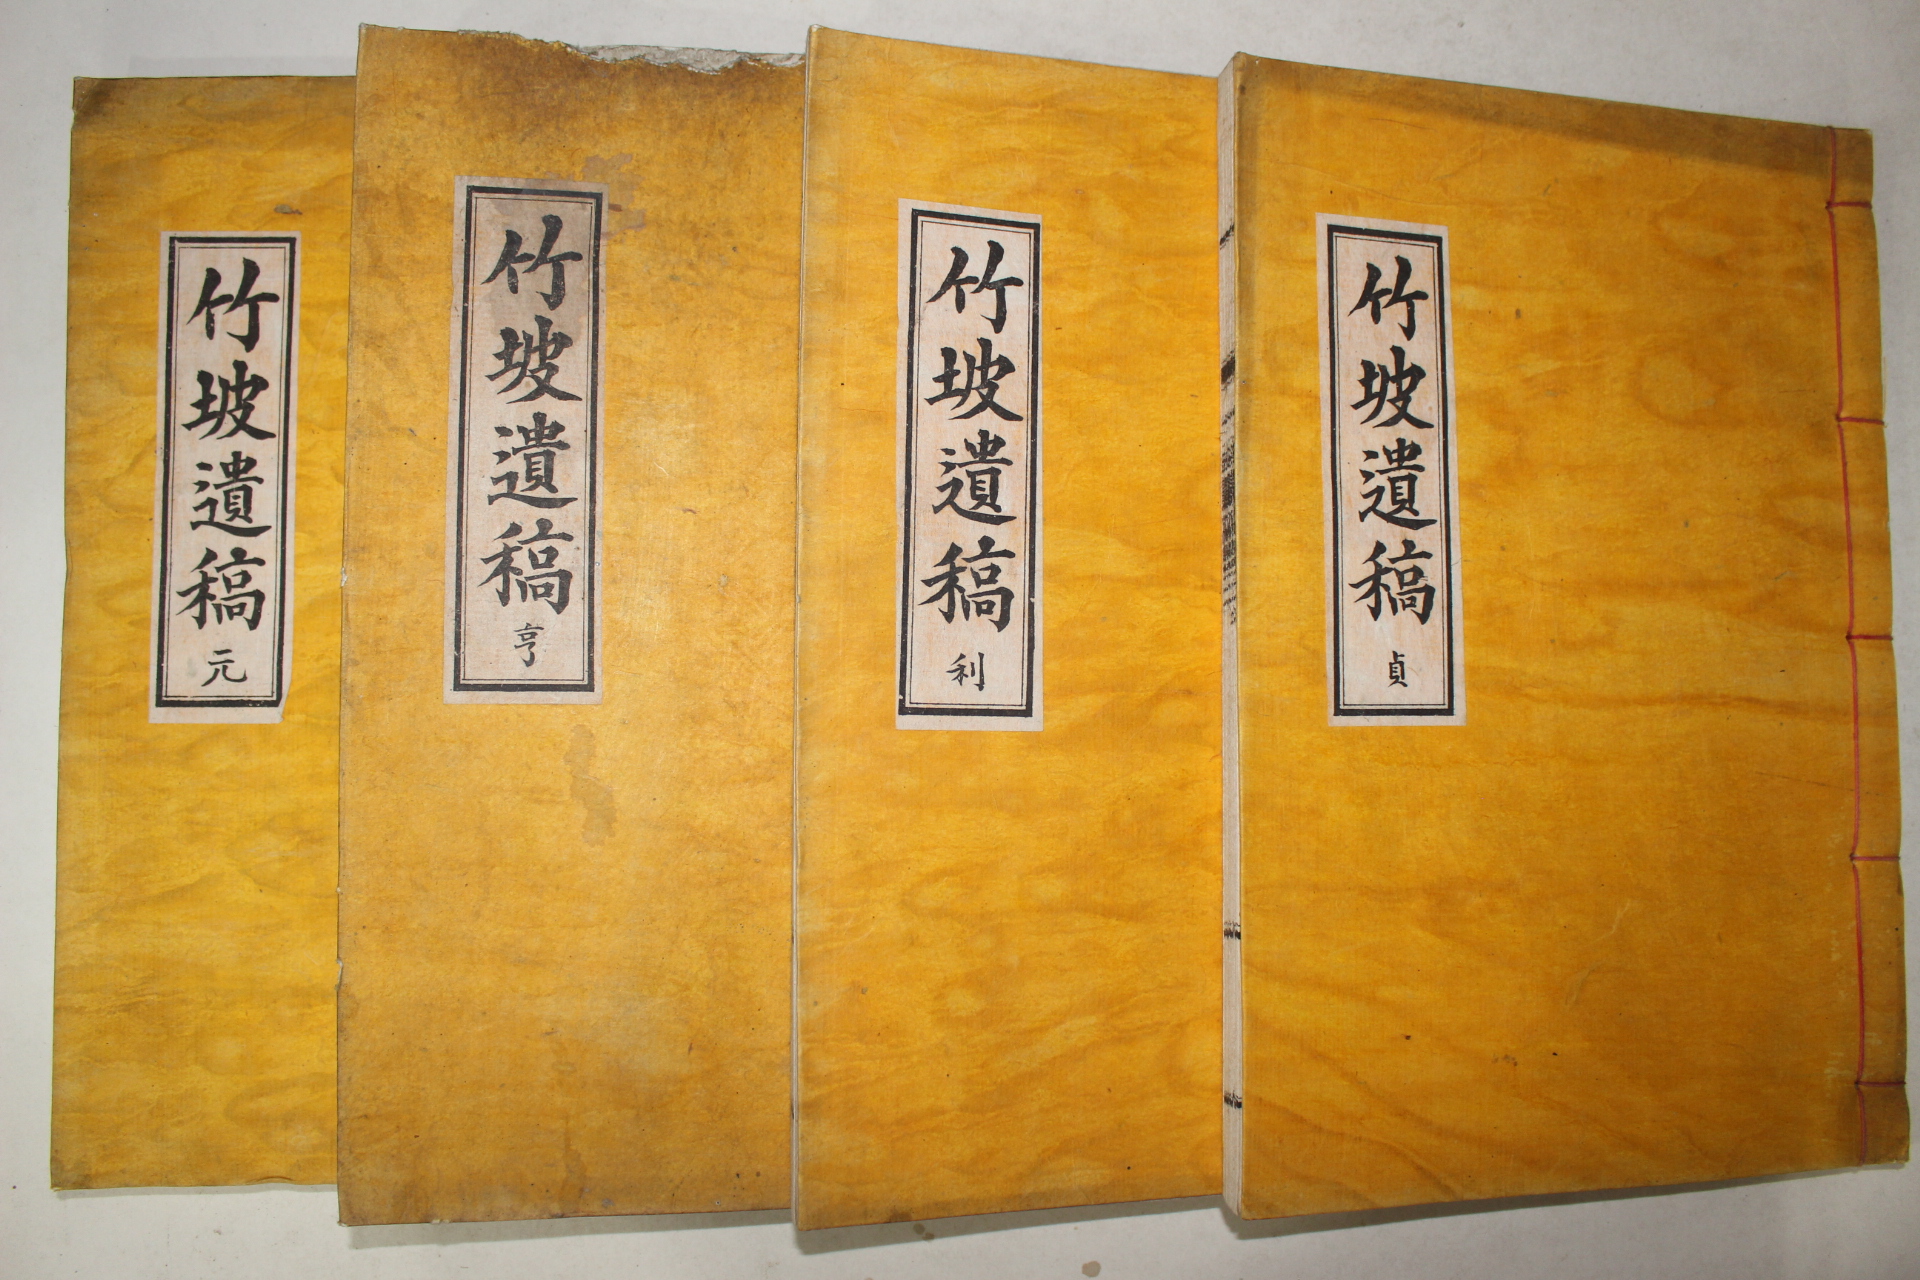 竹坡遺稿 元
竹坡遺稿 亨
竹坡遺稿 利
竹坡遺稿 貞